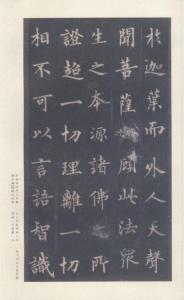 於迦葉而外人天聲
聞菩薩也顧此法眾
生之本源諸佛之所
證超一切理離一切
相不可以言語智識